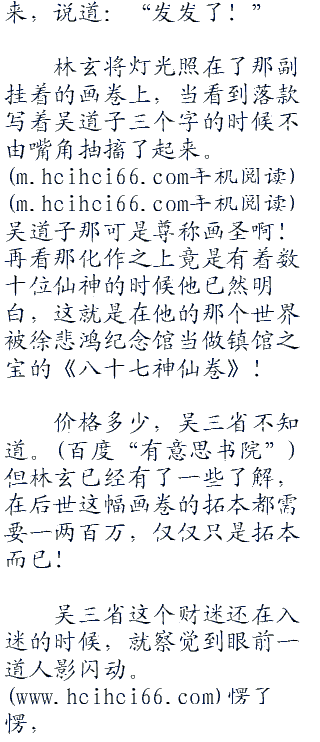 来，说道：“发发了！”
林玄将灯光照在了那副
挂着的画卷上，当看到落款
写着吴道子三个字的时候不
由嘴角抽搐了起来。
(m.hcihci66.com手机阅读)
(m.hcihci66.com手机阅读)
吴道子那可是尊称画圣啊！
再看那化作之上竟是有着数
十位仙神的时候他已然明
白，这就是在他的那个世界
被徐悲鸿纪念馆当做镇馆之
宝的《八十七神仙卷》！
价格多少，吴三省不知
道。(百度“有意思书院”)
但林玄已经有了一些了解，
在后世这幅画卷的拓本都需
要一两百万，仅仅只是拓本
而已！
吴三省这个财迷还在入
迷的时候，就察觉到眼前一
道人影闪动。
(www.hcihci66.com)愣了
愣，